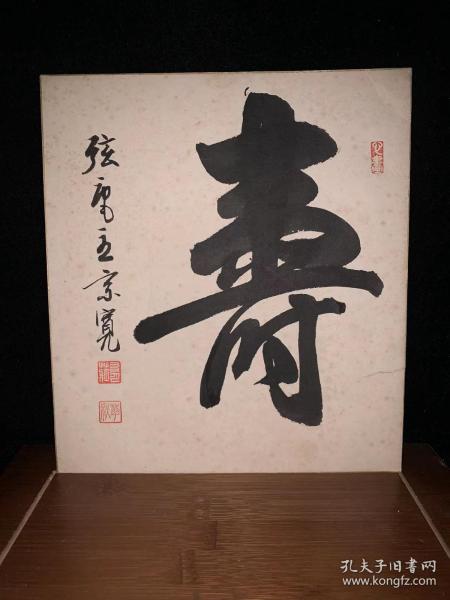 壽
弦庵主宗寛
孔夫子旧书网
www.kongfz.com